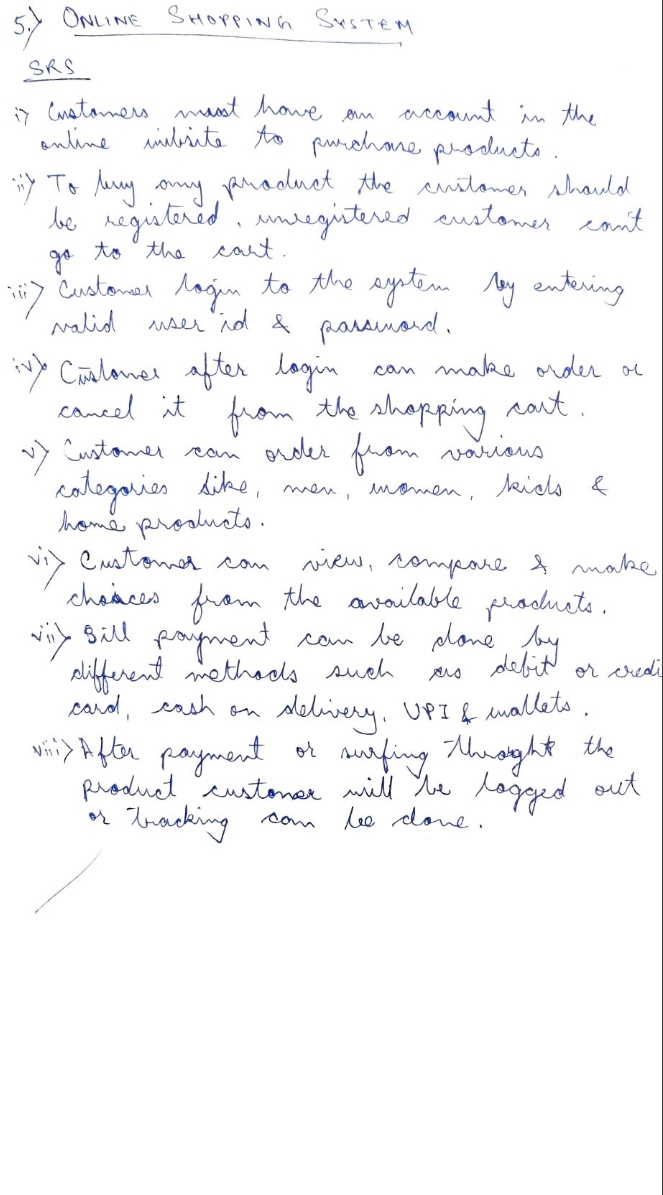 5.) ONLINE SHOPPING SYSTEM
SRS
i) Customers must have an account in the
online website to purchase products.
ii) To buy any product the customer should
be registered, unregistered customer can't
go to the cart.
iii) Customer login to the system by entering
valid user id & password.
iv) Customer after login can make order or
cancel it from the shopping cart.
v) Customer can order from various
categories like, men, women, kids &
home products.
vi) Customer can view, compare & make
choices from the available products.
vii) Bill payment can be done by
different methods such as debit or credi
card, cash on delivery, UPI & wallets.
viii) After payment or surfing throught the
product customer will be logged out
or tracking can be done.